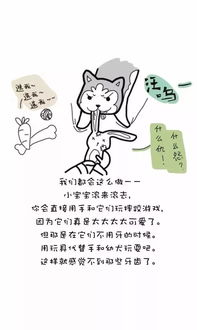 逃我~
逃我~~
逃我~~
汪呜——
什么仇！
什么怨？
我们都会这么做——
小宝宝滚来滚去，
你会直接用手和它们玩摔跤游戏，
因为它们真是太太太太可爱了。
但那是在它们不用牙的时候。
用玩具代替手和幼犬玩耍吧。
这样就感觉不到那些牙齿了。